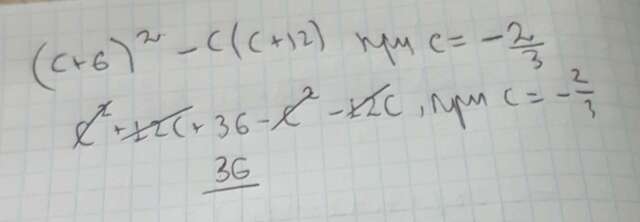 (c+6)² - c(c+12) при c = -2/3
c² + 12c + 36 - c² - 12c, при c = -2/3
36